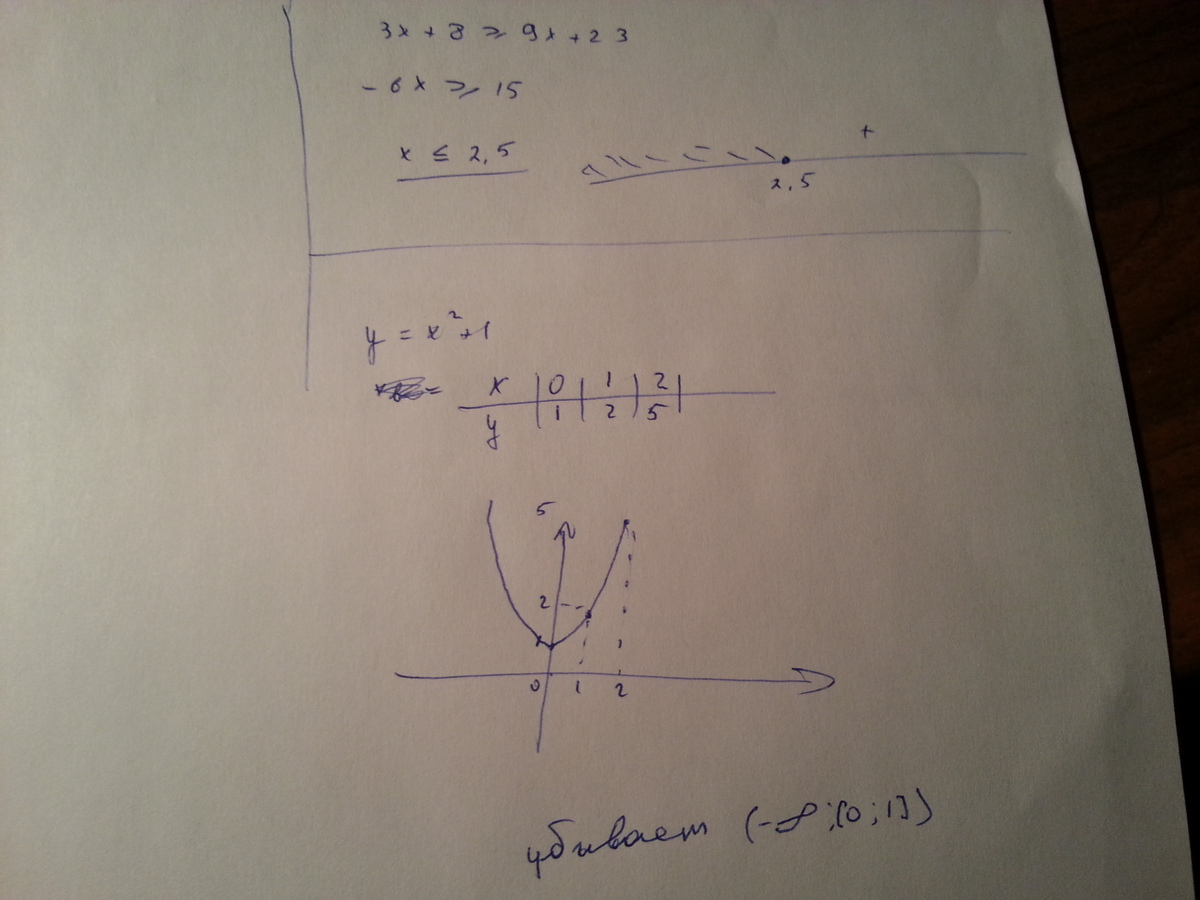 3x + 8 ≥ 9x + 23
- 6x ≥ 15
x ≤ 2,5
+
2,5
y = x² + 1
x | 0 | 1 | 2 |
y | 1 | 2 | 5
5
2
1
0 1 2
убывает (-∞; [0; 1])